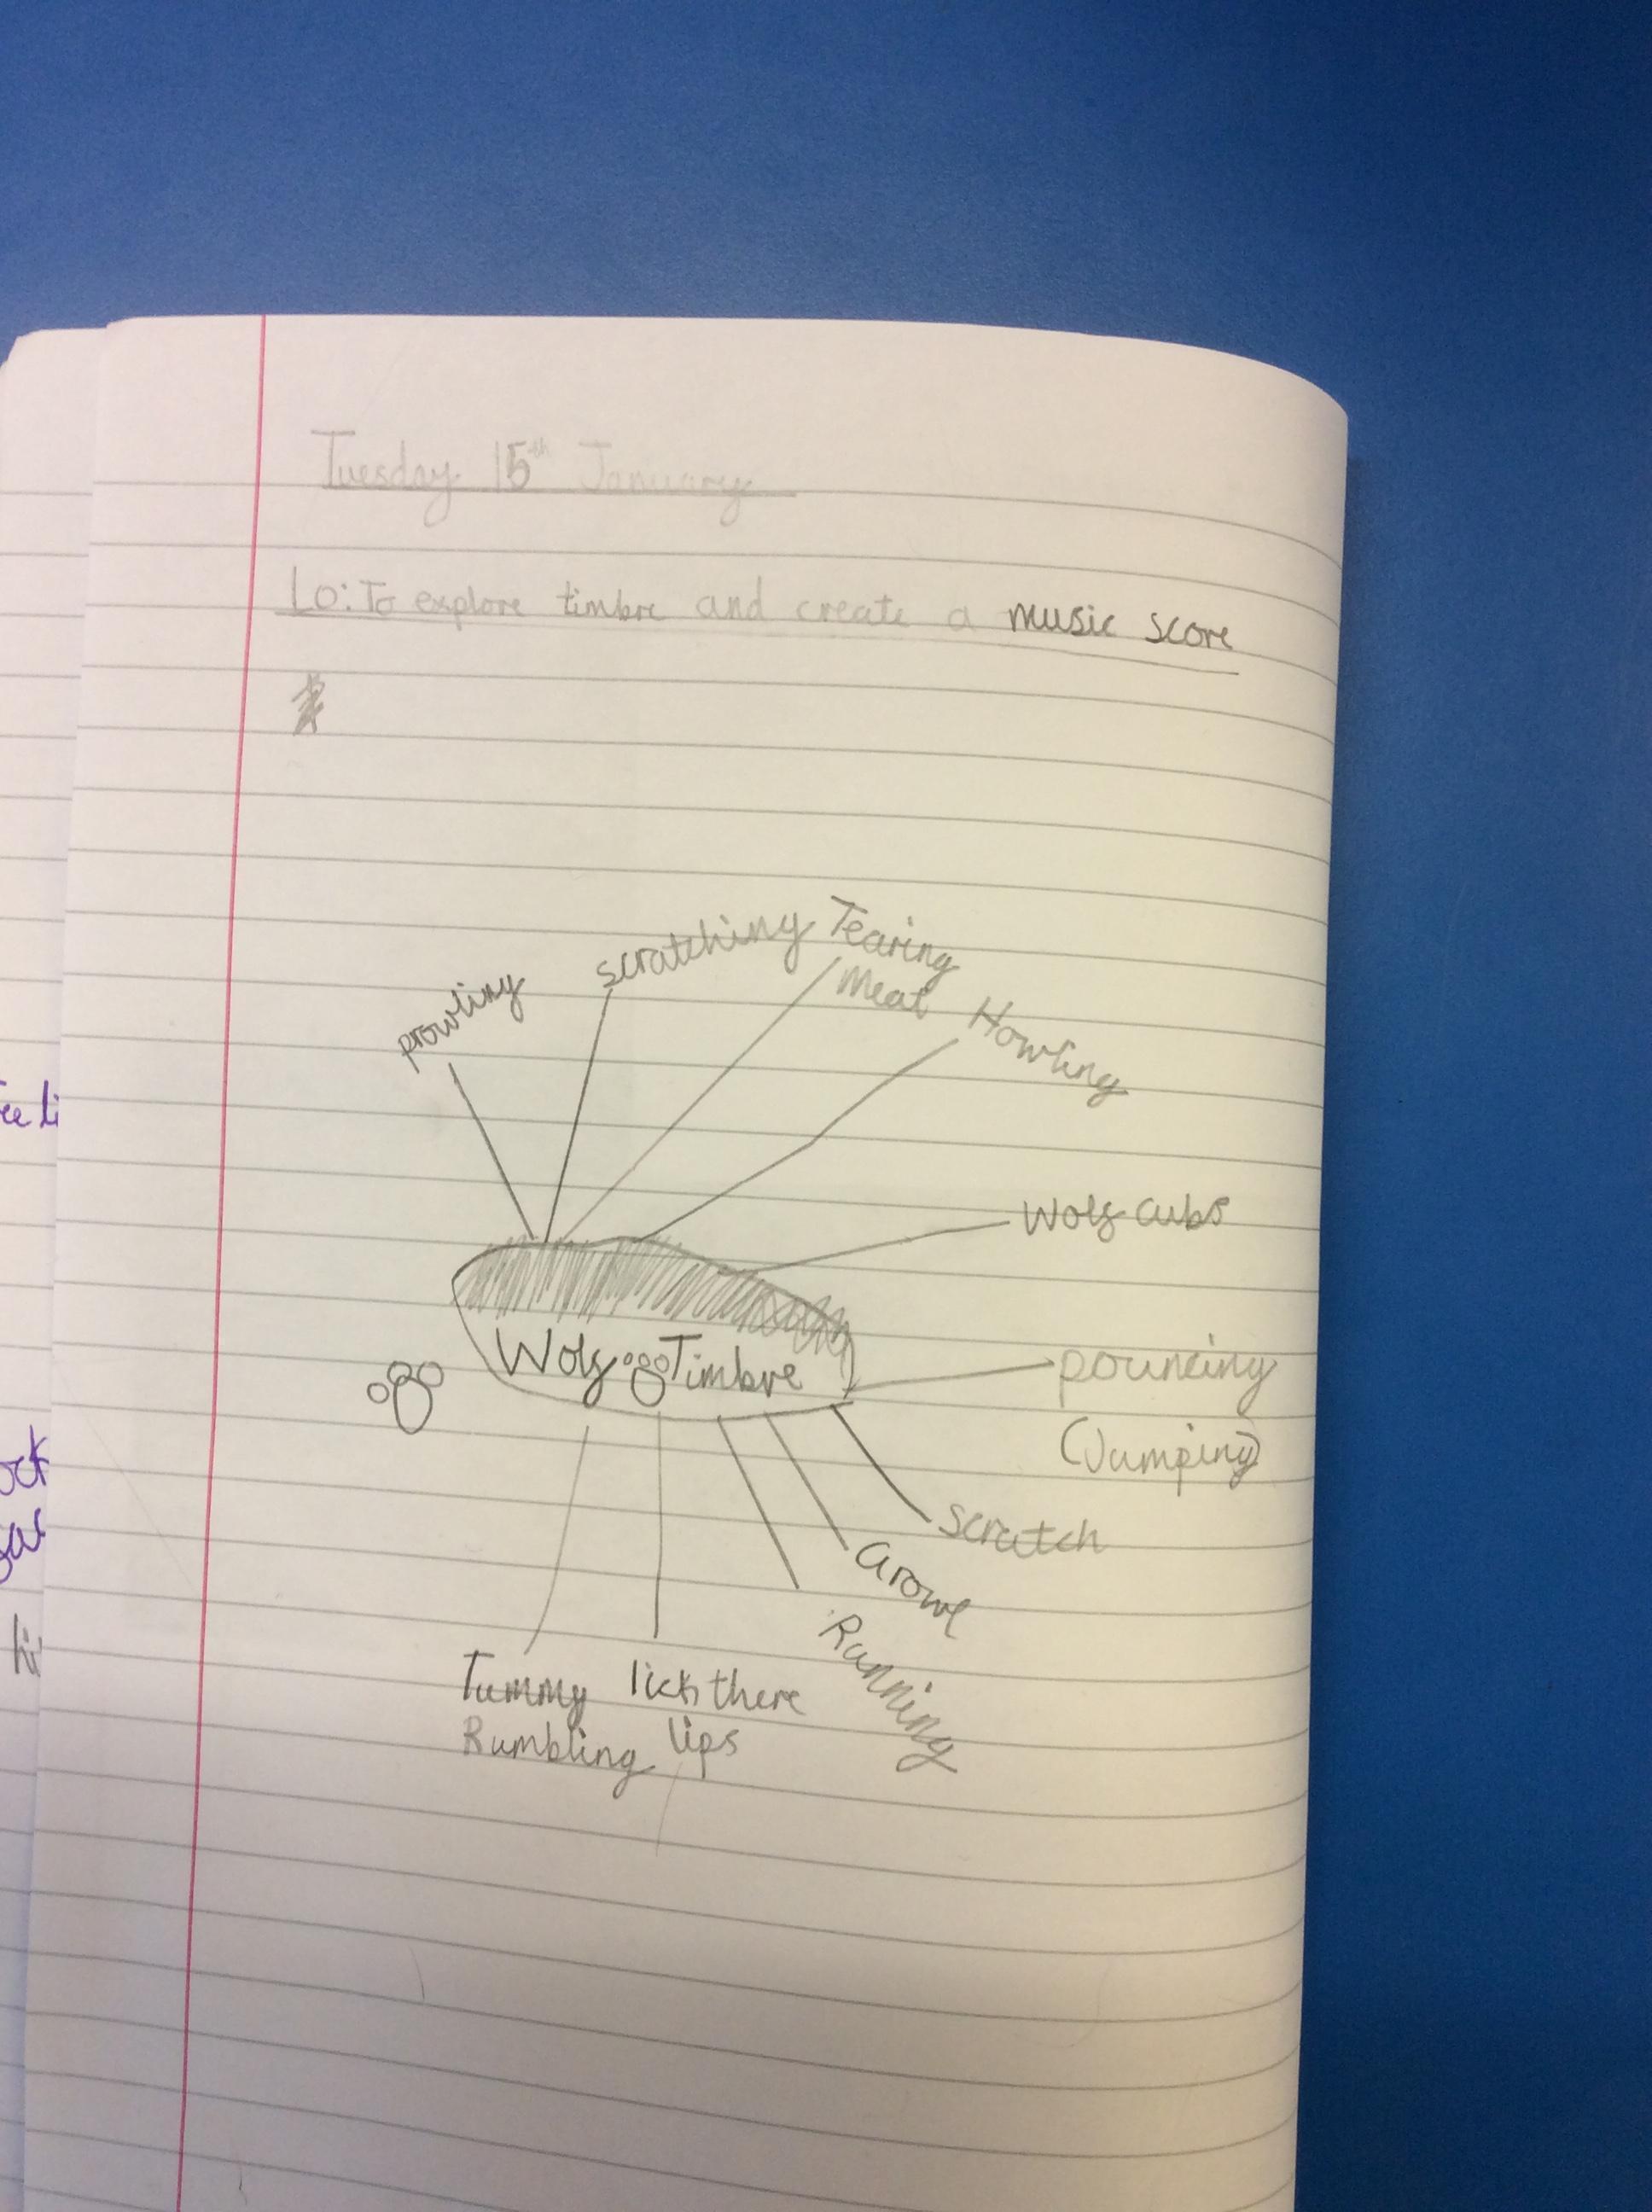 Tuesday 15th January
Lo: To explore timbre and create a music score
prowling
scratching
Tearing
Meat
Howling
Wolf cubs
Wolf Timbre
pouncing
(Jumping)
scratch
Growl
Running
lick there
lips
Tummy
Rumbling